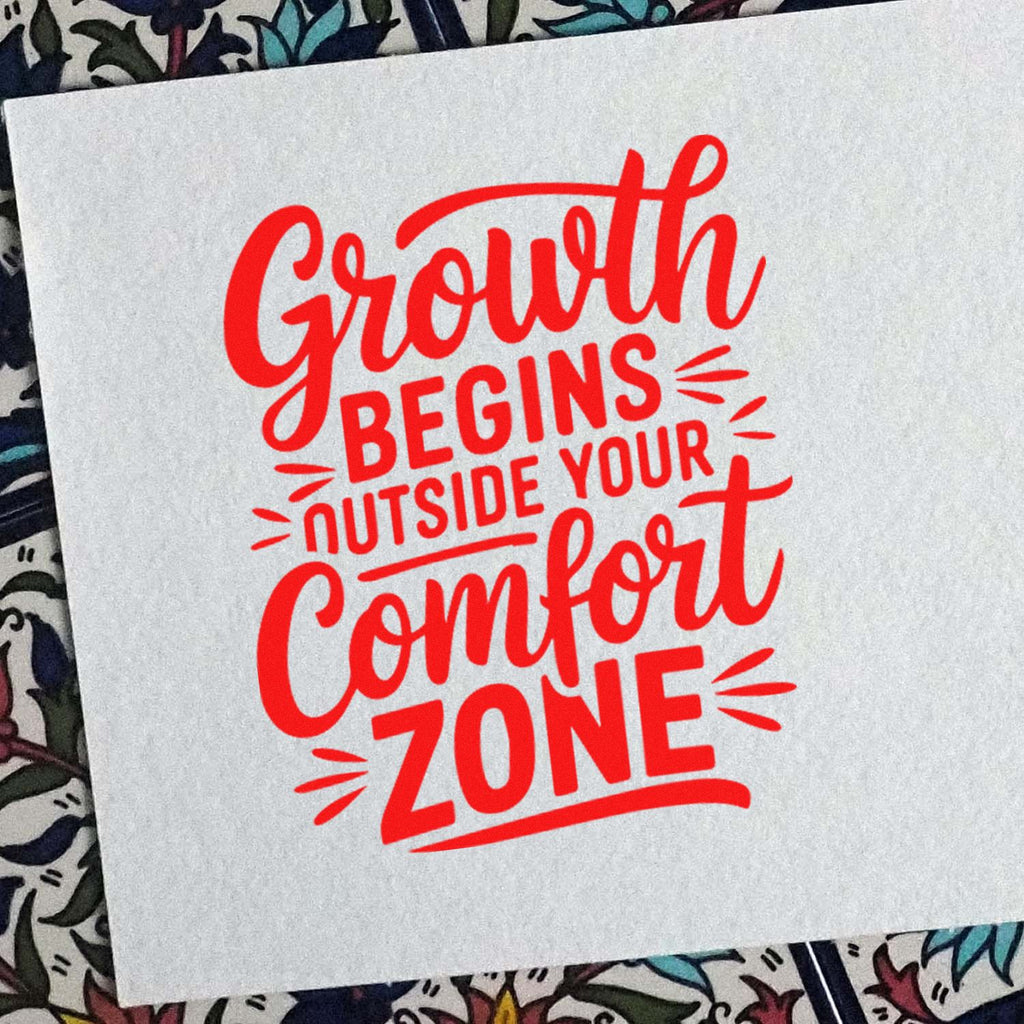 Growth
BEGINS
OUTSIDE YOUR
Comfort
ZONE